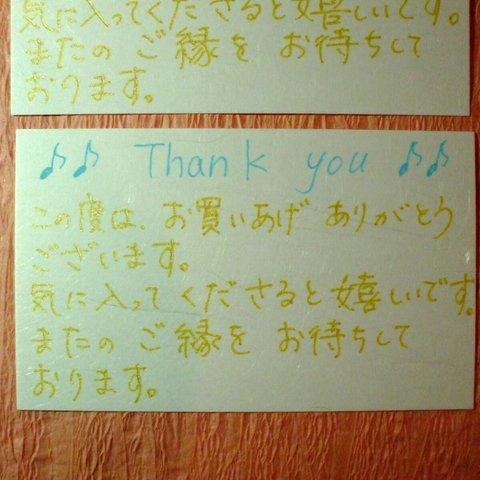 気に入ってくださると嬉しいです。
またのご縁を お待ちして
おります。
♪♪ Thank you ♪♪
この度は、お買いあげ ありがとう
ございます。
気に入ってくださると嬉しいです。
またのご縁を お待ちして
おります。